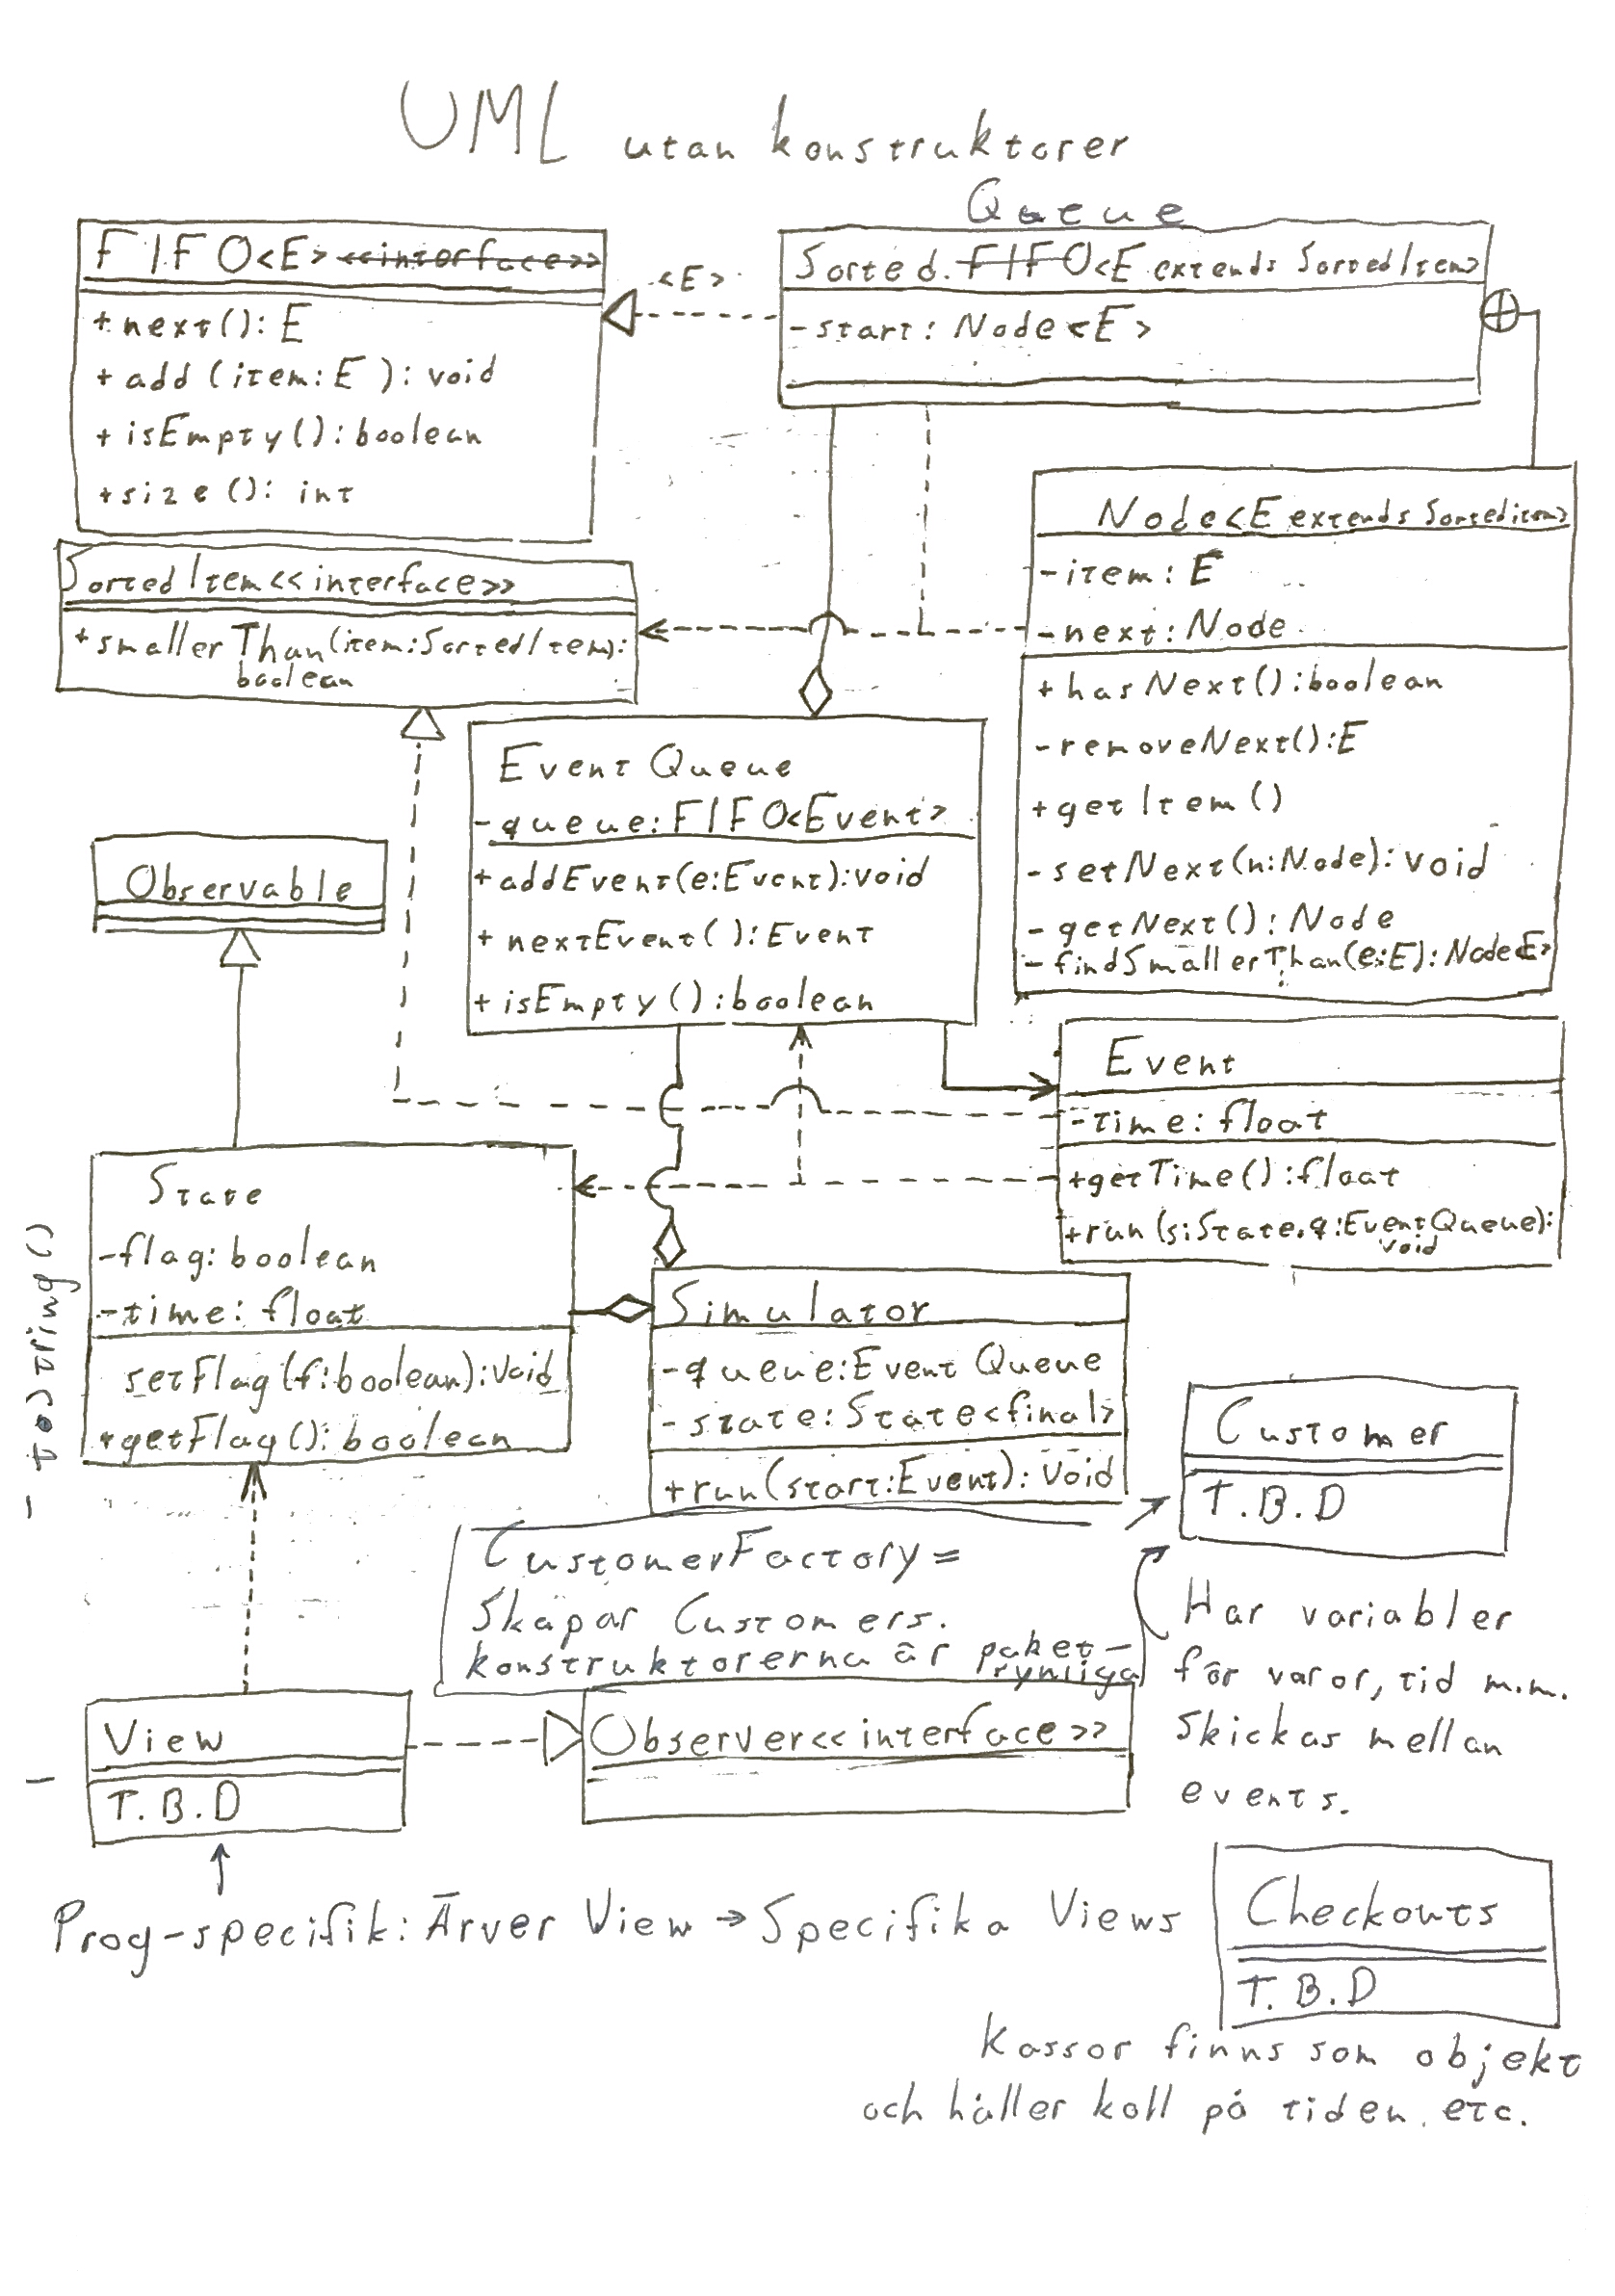 UML utan konstruktorer
FIFO<E> <<interface>>
+next(): E
+ add (item: E ): void
+ isEmpty(): boolean
+size(): int
<E>
Queue
Sorted FIFO<E extends SortedItem>
-start: Node<E>
Node<E extends SortedItem>
-item: E
-next: Node
+hasNext():boolean
-removeNext():E
+getItem()
-setNext(n:Node): void
-getNext(): Node
-findSmallerThan(e:E): Node<E>
SortedItem<<interface>>
+smallerThan(item:SortedItem):
boolean
EventQueue
-queue: FIFO<Event>
+addEvent(e:Event):void
+nextEvent(): Event
+isEmpty(): boolean
Observable
Event
-time: float
+getTime(): float
+run(s:State, q:EventQueue):
void
State
-flag: boolean
-time: float
setFlag(f:boolean):void
+getFlag(): boolean
- toString()
Simulator
-queue:EventQueue
-state:State<final>
+run(start:Event): void
Customer
T.B.D
CustomerFactory=
Skapar Customers.
konstruktorerna är paket-
synliga
Har variabler
för varor, tid m.m.
Skickas mellan
events.
View
T.B.D
Observer<<interface>>
Prog-specifik: Ärver View → Specifika Views
Checkouts
T.B.D
Kassor finns som objekt
och håller koll på tiden. etc.